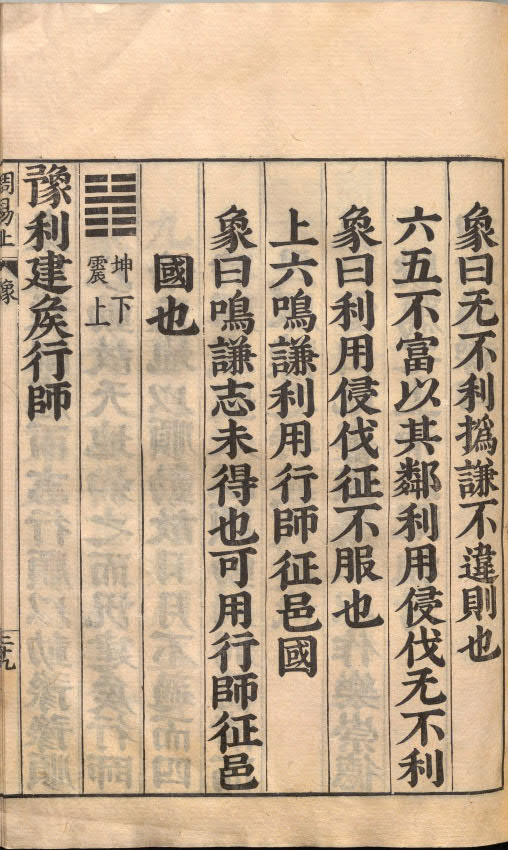 象曰无不利撝謙不違則也
六五不富以其鄰利用侵伐无不利
象曰利用侵伐征不服也
上六鳴謙利用行師征邑國
象曰鳴謙志未得也可用行師征邑
國也
坤下
震上
豫利建矦行師
周易上
豫
二十九